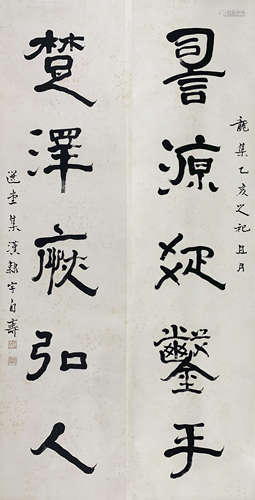 龍集乙亥之祀且月
詞源疏鑿手
楚澤弘人
選堂集漢隸字自壽